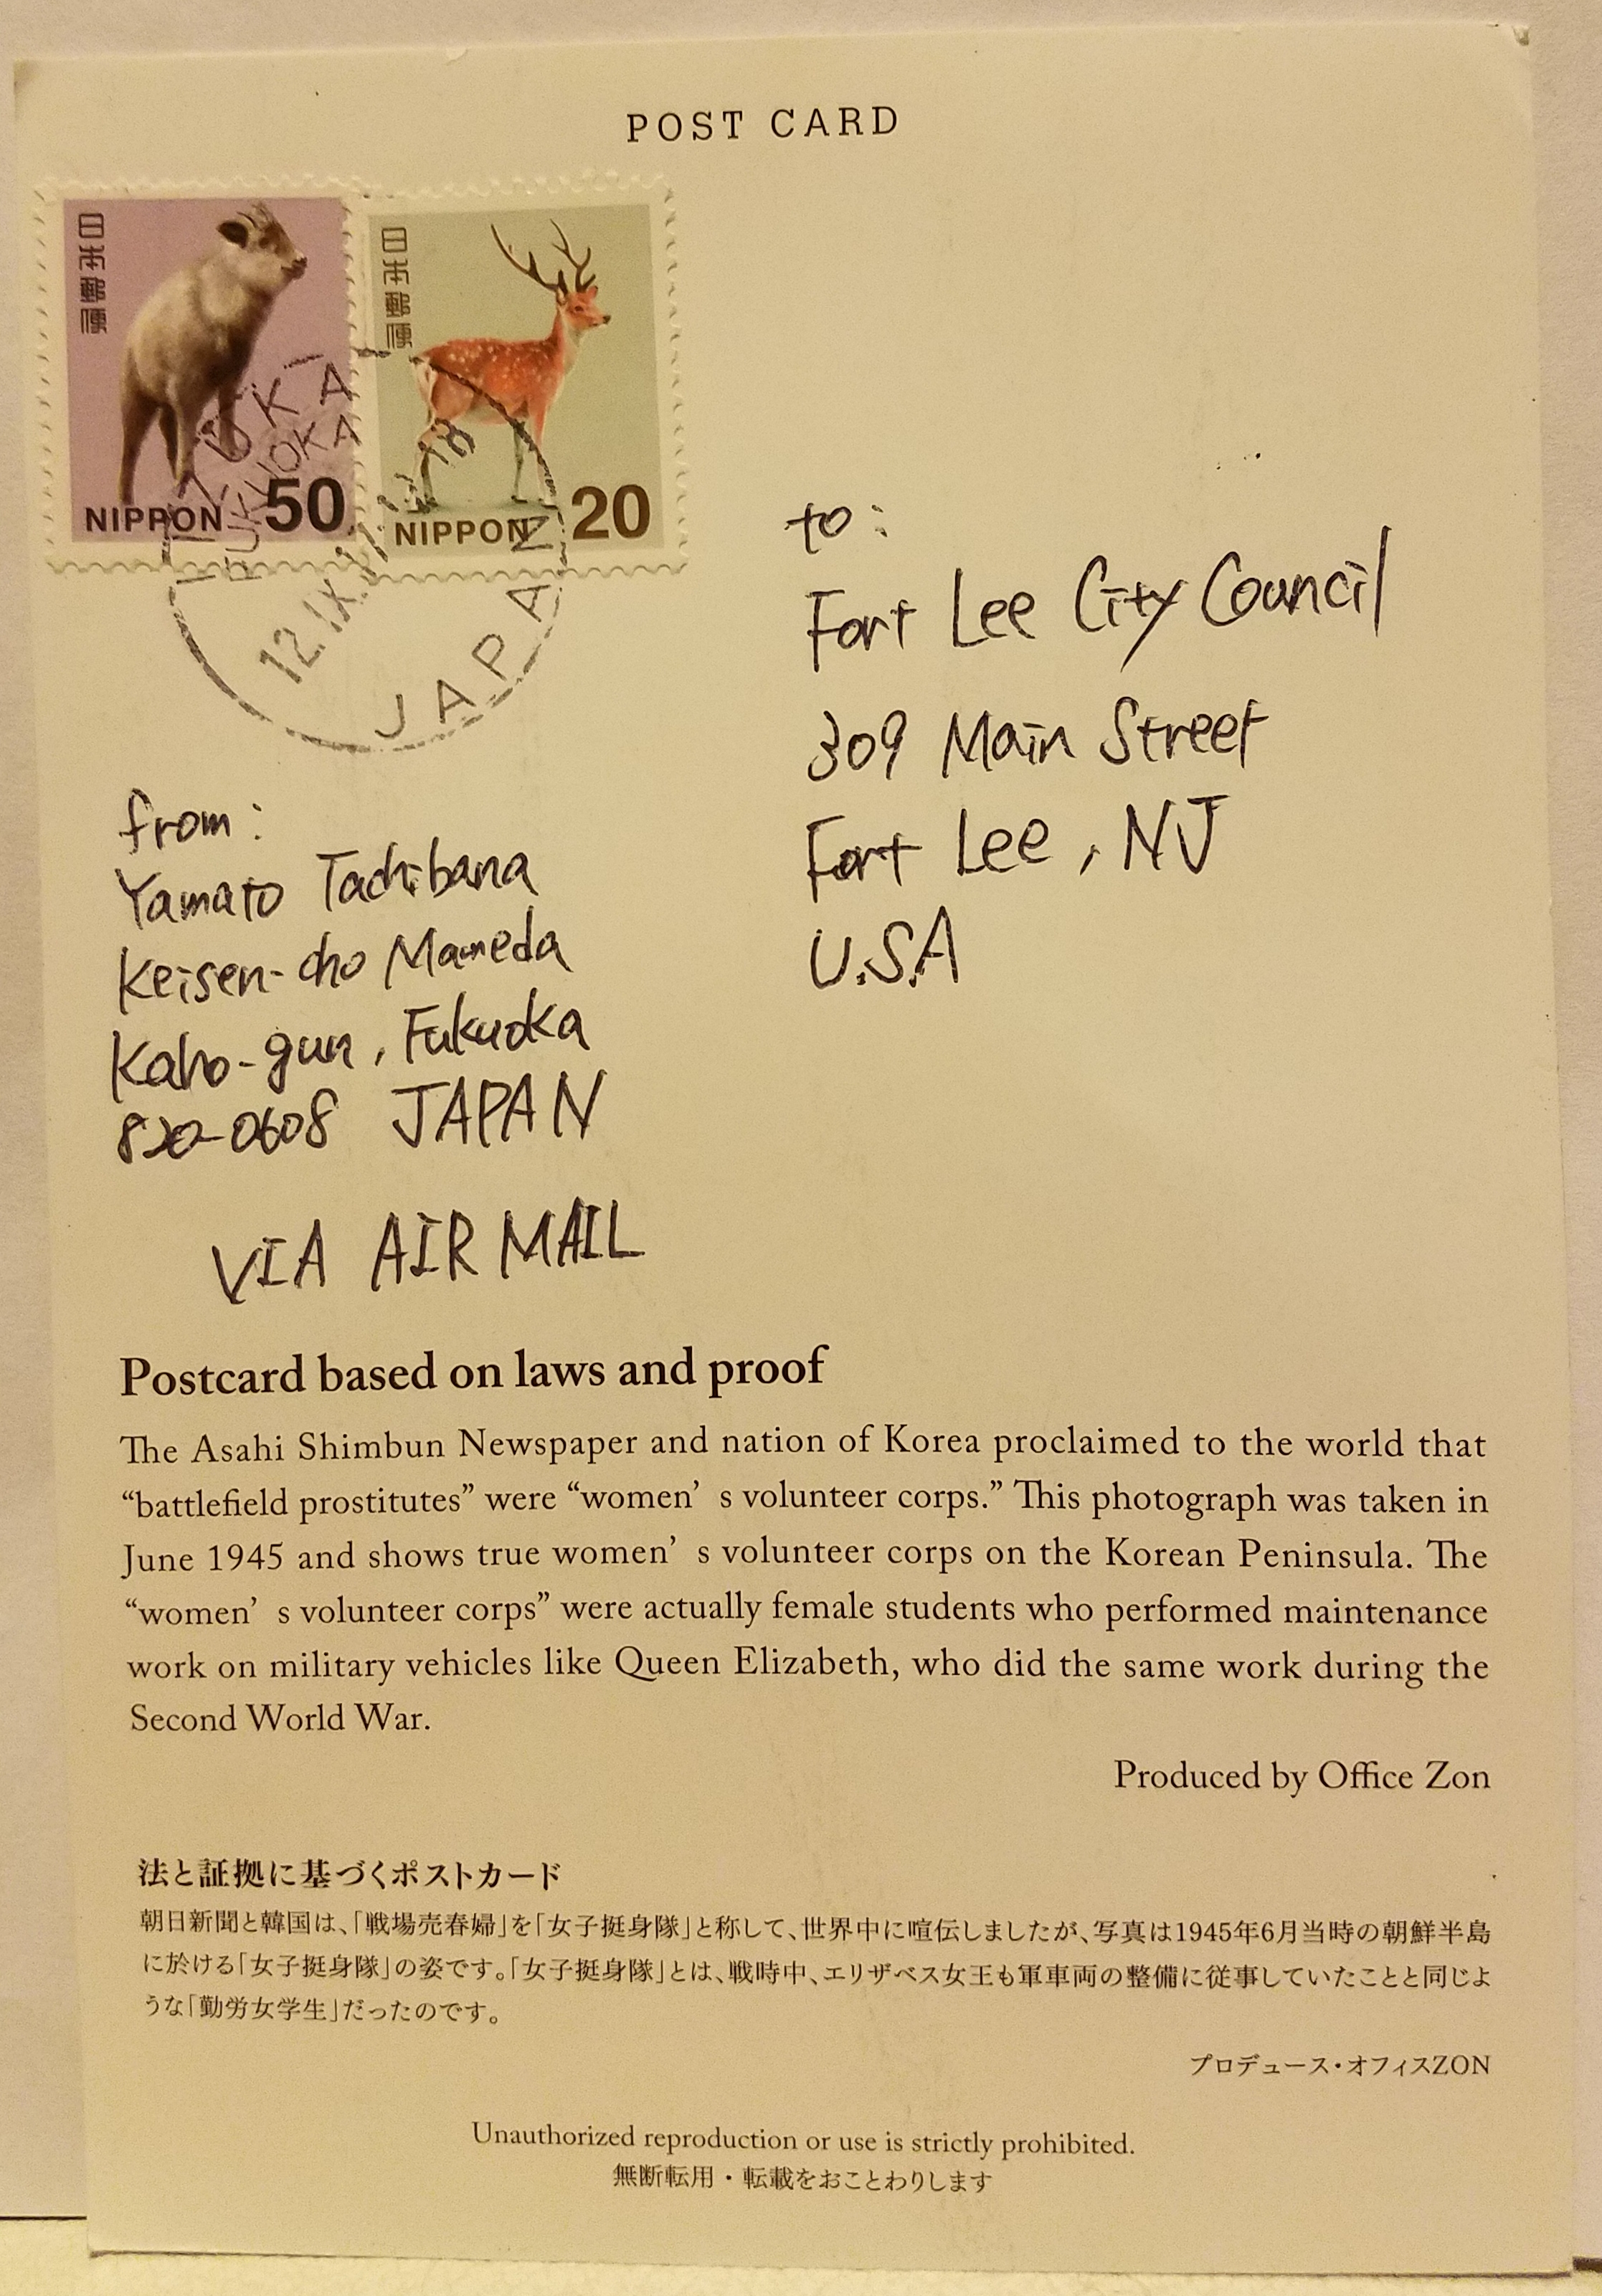 POST CARD
日本郵便
NIPPON 50
日本郵便
NIPPON 20
12.IX.
JAPAN
to:
Fort Lee City Council
309 Main Street
Fort Lee, NJ
U.S.A
from:
Yamato Tachibana
Keisen-cho Mameda
Kaho-gun, Fukuoka
820-0608 JAPAN
VIA AIR MAIL
Postcard based on laws and proof
The Asahi Shimbun Newspaper and nation of Korea proclaimed to the world that
“battlefield prostitutes” were “women’ s volunteer corps.” This photograph was taken in
June 1945 and shows true women’ s volunteer corps on the Korean Peninsula. The
“women’ s volunteer corps” were actually female students who performed maintenance
work on military vehicles like Queen Elizabeth, who did the same work during the
Second World War.
Produced by Office Zon
法と証拠に基づくポストカード
朝日新聞と韓国は、「戦場売春婦」を「女子挺身隊」と称して、世界中に喧伝しましたが、写真は1945年6月当時の朝鮮半島
に於ける「女子挺身隊」の姿です。「女子挺身隊」とは、戦時中、エリザベス女王も軍車両の整備に従事していたことと同じよ
うな「勤労女学生」だったのです。
プロデュース・オフィスZON
Unauthorized reproduction or use is strictly prohibited.
無断転用・転載をおことわりします